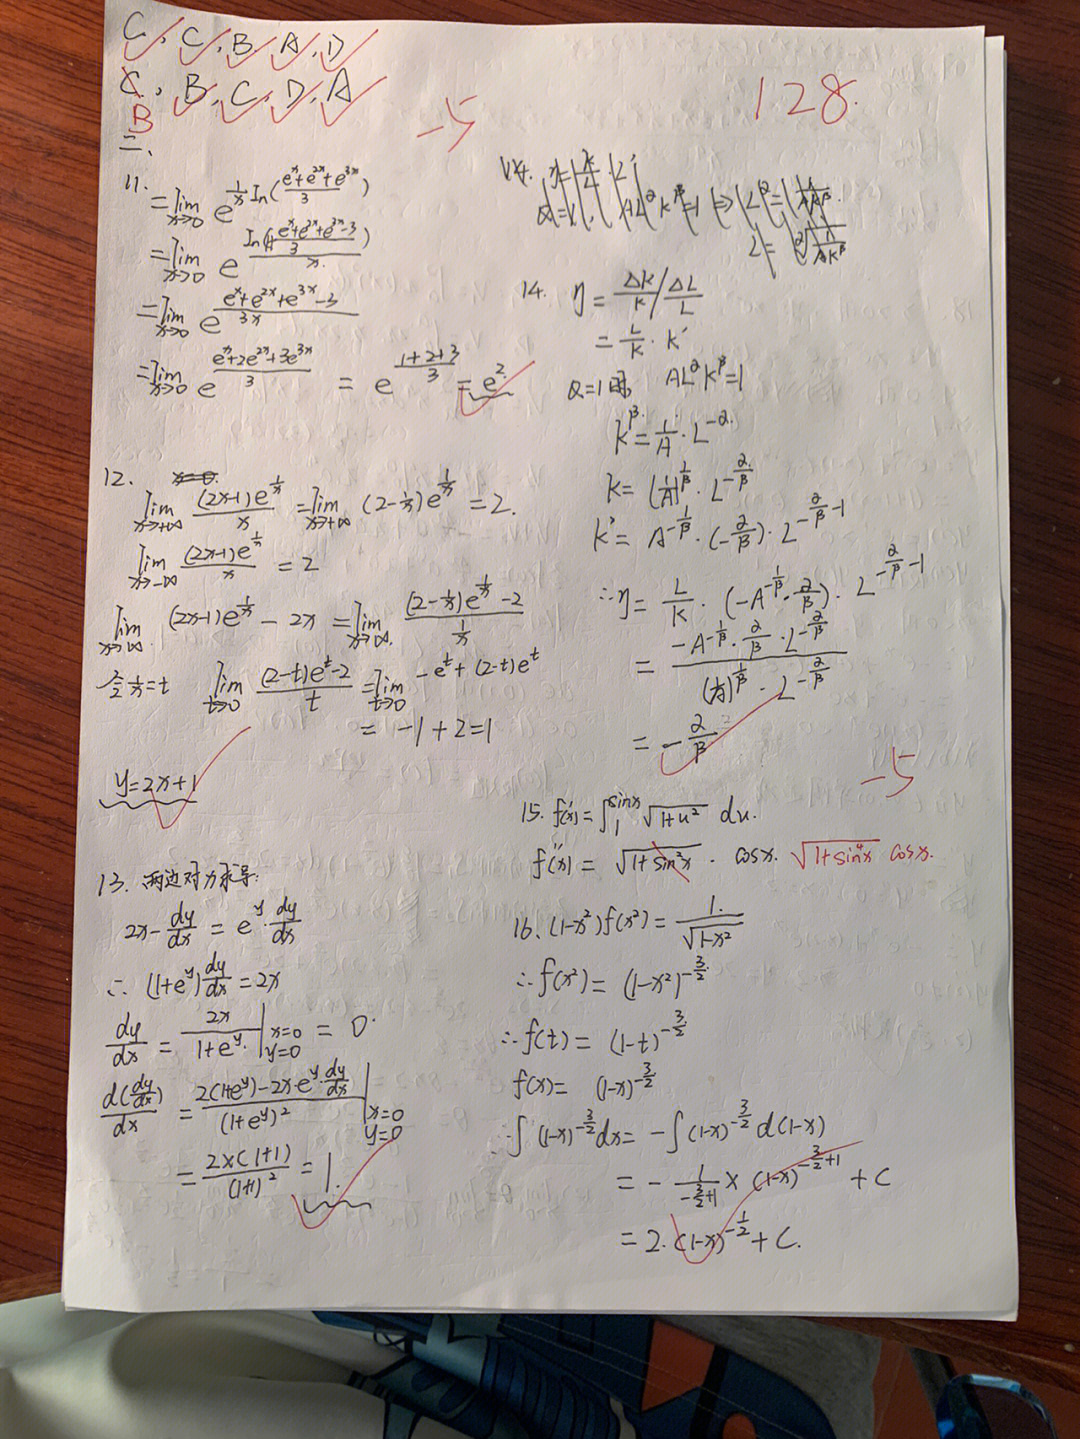 C, C, B, A, D
C, B, C, D, A
B
-5
128.
二、
11. =lim x→0 e^(1/x ln((e^x+e^2x+e^3x)/3))
=lim x→0 e^(ln(1+(e^x+e^2x+e^3x-3)/3)/x)
=lim x→0 e^((e^x+e^2x+e^3x-3)/3x)
=lim x→0 e^((e^x+2e^2x+3e^3x)/3) = e^((1+2+3)/3) = e^2.
12.
lim x→+∞ (2x-1)e^(1/x)/x = lim x→+∞ (2-1/x)e^(1/x) = 2.
lim x→-∞ (2x-1)e^(1/x)/x = 2
lim x→∞ (2x-1)e^(1/x) - 2x = lim x→∞ ((2-1/x)e^(1/x)-2)/(1/x)
令1/x=t lim t→0 ((2-t)e^t-2)/t = lim t→0 -e^t+(2-t)e^t
= -1+2=1
y=2x+1
13. 两边对x求导:
2x-dy/dx = e^y·dy/dx
∴ (1+e^y)dy/dx=2x
dy/dx = 2x/(1+e^y) | x=0 y=0 = 0.
d(dy/dx)/dx = (2(1+e^y)-2x·e^y·dy/dx)/(1+e^y)^2 | x=0 y=0
= 2×(1+1)/(1+1)^2 = 1.
14. η = ΔK/K / ΔL/L
= L/K · K'
Q=1时 AL^αK^β=1
K^β=1/A·L^-α.
K=(1/A)^(1/β)·L^(-α/β)
K'= A^(-1/β)·(-α/β)·L^(-α/β-1)
∴η= L/K·(-A^(-1/β)·α/β)·L^(-α/β-1)
= (-A^(-1/β)·α/β·L^(-α/β))/((1/A)^(1/β)·L^(-α/β))
= -α/β
-5
15. f'(x)=∫_1^sinx √(1+u²) du.
f''(x)= √(1+sin²x) · cosx. √(1+sin⁴x) cosx.
16. (1-x²)f(x²)= 1/√(1-x²)
∴f(x²)= (1-x²)^(-3/2)
∴f(t)= (1-t)^(-3/2)
f(x)= (1-x)^(-3/2)
∴∫(1-x)^(-3/2)dx= -∫(1-x)^(-3/2)d(1-x)
= -1/(-3/2+1)×(1-x)^(-3/2+1)+C
= 2·(1-x)^(-1/2)+C.